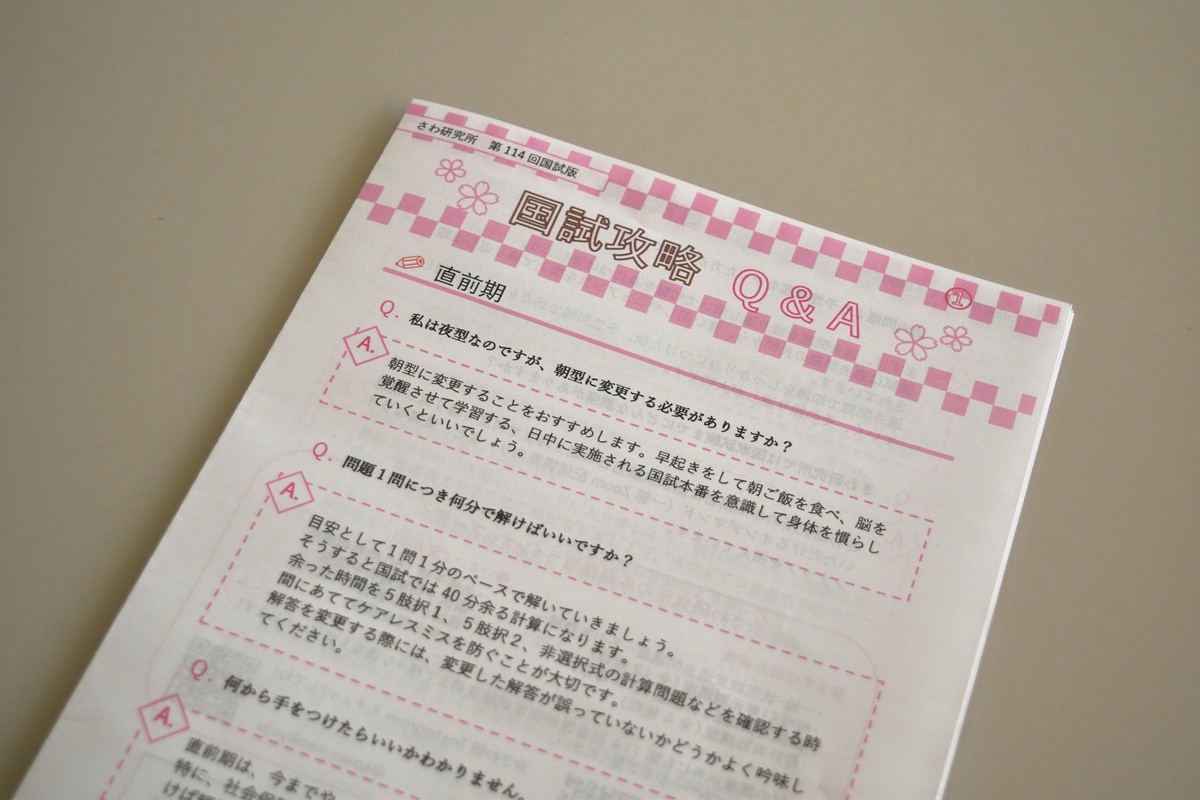 さわ研究所 第114回国試版
国試攻略 Q&A ①
直前期
Q. 私は夜型なのですが、朝型に変更する必要がありますか？
A. 朝型に変更することをおすすめします。早起きをして朝ご飯を食べ、脳を
覚醒させて学習する、日中に実施される国試本番を意識して身体を慣らし
ていくといいでしょう。
Q. 問題1問につき何分で解けばいいですか？
A. 目安として1問1分のペースで解いていきましょう。
そうすると国試では40分余る計算になります。
余った時間を5肢択1、5肢択2、非選択式の計算問題などを確認する時
間にあててケアレスミスを防ぐことが大切です。
解答を変更する際には、変更した解答が誤っていないかどうかよく吟味し
てください。
Q. 何から手をつけたらいいかわかりません。
A. 直前期は、今までや
特に、社会保
けば